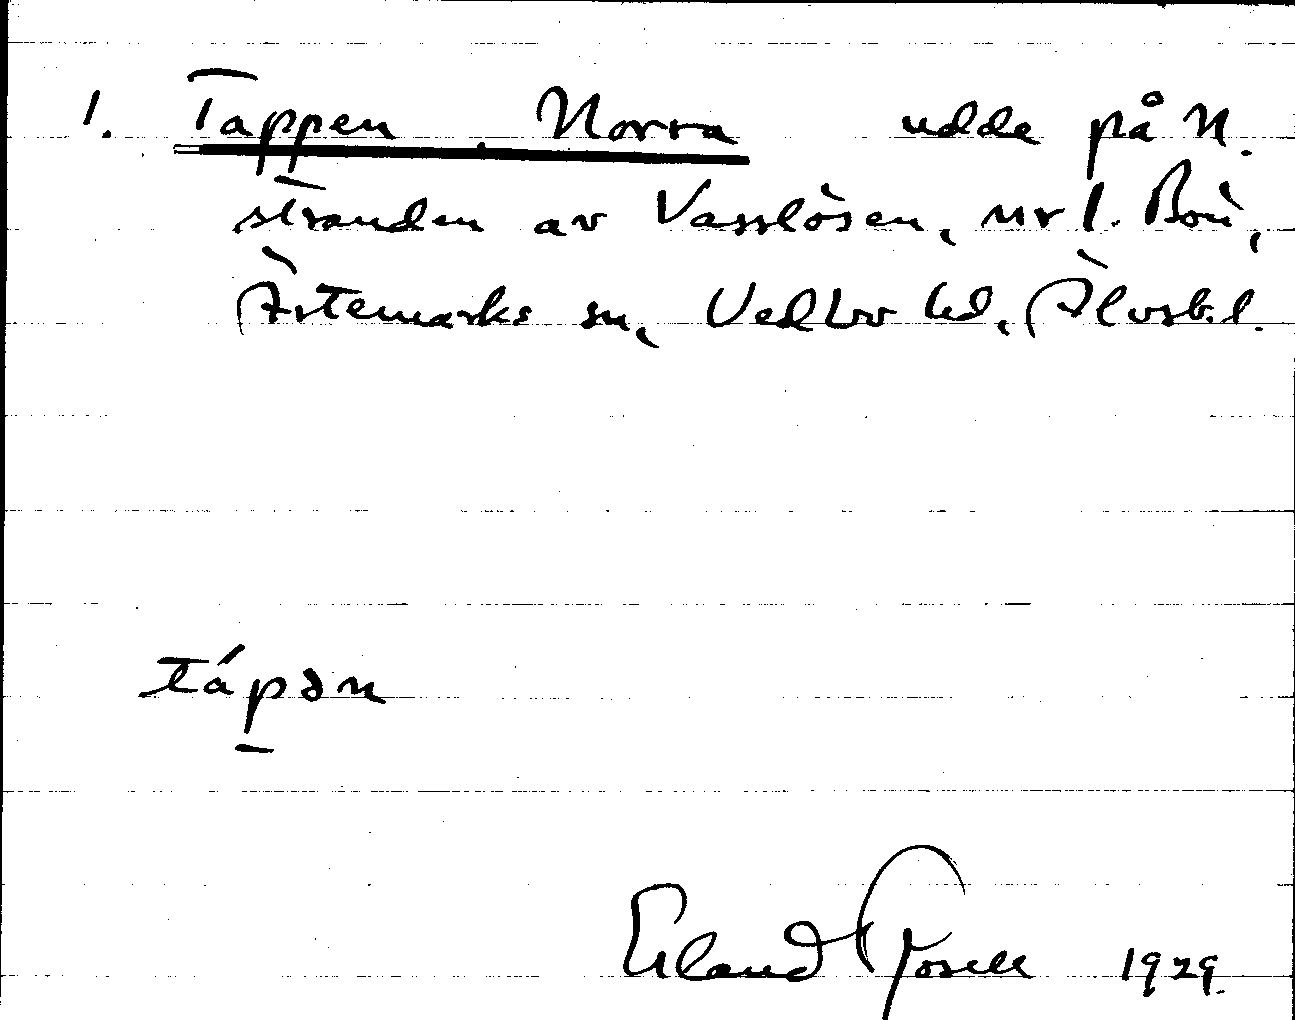 1. Tappen, Norra udde på N.
stranden av Vasslösen, nr 1. Bön,
Ärtemarks sn, Vedbo hd, Älvsb. l.
tápən
Erland Rosell 1929.